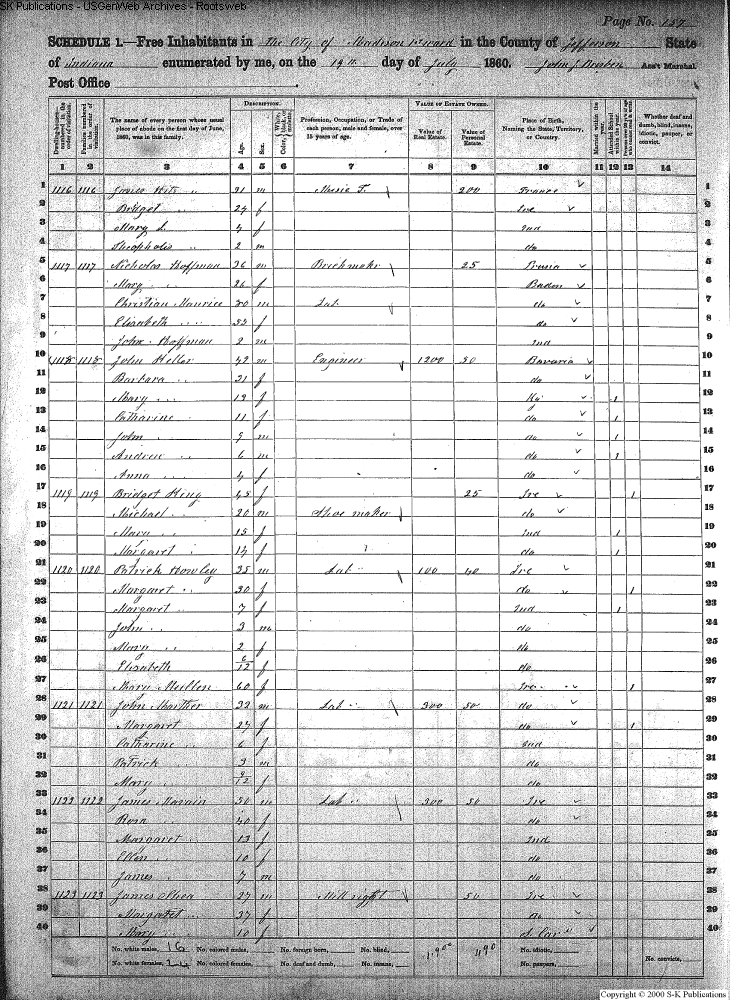 SK Publications - USGenWeb Archives - Rootsweb
Page No. 157
SCHEDULE 1.—Free Inhabitants in The City of Madison ward in the County of Jefferson State
of Indiana enumerated by me, on the 19th day of July 1860. Ass't Marshal
Post Office
Dwelling-houses numbered in the order of visitation.
Families numbered in the order of visitation.
The name of every person whose usual place of abode on the first day of June, 1860, was in this family.
DESCRIPTION.
Age.
Sex.
Color, White, black, or mulatto.
Profession, Occupation, or Trade of each person, male and female, over 15 years of age.
VALUE OF ESTATE OWNED.
Value of Real Estate.
Value of Personal Estate.
Place of Birth, Naming the State, Territory, or Country.
Married within the year.
Attended School within the year.
Whether deaf and dumb, blind, insane, idiotic, pauper, or convict.
1 2 3 4 5 6 7 8 9 10 11 12 13 14
1 1116 1116 31 m Music T. 200 France 1
2 Bridget 27 f Ire 2
3 Mary 4 f Ind 3
4 Theopholis 2 m do 4
5 1117 1117 Nicholas Hoffman 36 m Brickmakr 25 Prusia 5
6 Mary 26 f Baden 6
7 Christian Maurice 30 m Lab do 7
8 Elisabeth 53 f do 8
9 John Hoffman 2 m Ind 9
10 1118 1118 John Kellor 42 m Engineer 1200 50 Bavaria 10
11 Barbara 31 f do 11
12 Mary f Ky 1 12
13 Catharine 11 f do 1 13
14 John 9 m do 1 14
15 Andrew 6 m do 1 15
16 Anna 4 f do 16
17 1119 1119 Bridget King 45 f 25 Ire 1 17
18 Michael 20 m Shoe maker do 18
19 Mary 15 f Ind 1 19
20 Margaret 14 f do 1 20
21 1120 1120 Patrick Howley 35 m Lab 100 40 Ire 21
22 Margaret 30 f do 1 22
23 Margaret 7 f Ind 1 23
24 John 3 m do 24
25 Mary 2 f do 25
26 Elisabeth 6/12 f do 26
27 Mary Mullen 60 f Ire 1 27
28 1121 1121 John 32 m Lab 300 50 do 28
29 Margaret 27 f do 1 29
30 Catharine 6 f Ind 30
31 Patrick 3 m do 31
32 Mary 9/12 f do 32
33 1122 1122 James 50 m Lab 300 50 Ire 33
34 Rosa 40 f do 34
35 Margaret 13 f Ind 35
36 Ellen 10 f do 36
37 James 7 m do 37
38 1123 1123 James Shea 37 m Mill right 50 Ire 38
39 Margaret 37 f do 39
40 Mary 10 f S. Car 40
No. white males, 16 No. colored males, No. foreign born, No. blind, 1900 490 No. idiotic,
No. white females, 24 No. colored females, No. deaf and dumb, No. insane, No. paupers, No. convicts,
Copyright © 2000 S-K Publications